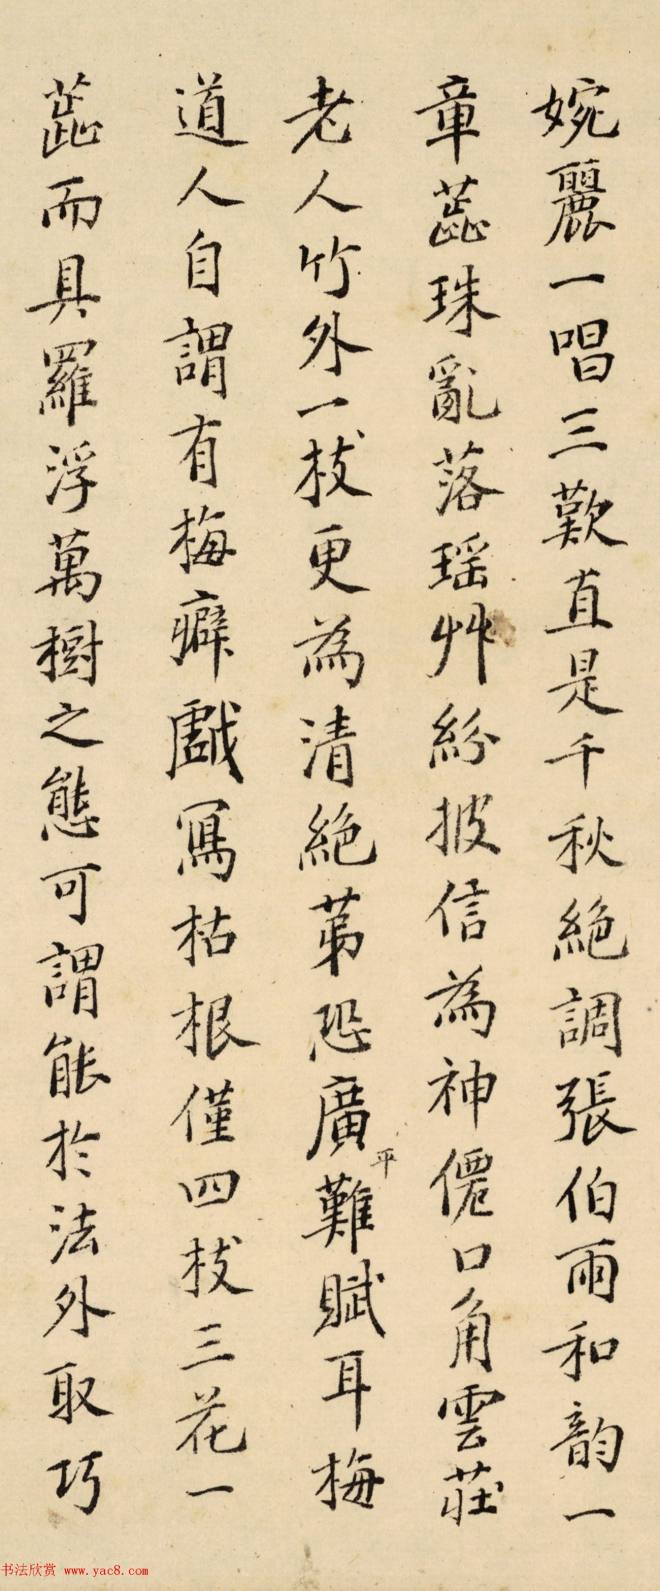 婉麗一唱三歎直是千秋絶調張伯雨和韵一
章蕋珠亂落瑶艸紛披信為神僊口角雲莊
老人竹外一枝更為清絶苐恐廣平難賦耳梅
道人自謂有梅癖戲寫枯根僅四枝三花一
蕋而具羅浮萬樹之態可謂能於法外取巧
书法欣赏 www.yac8.com